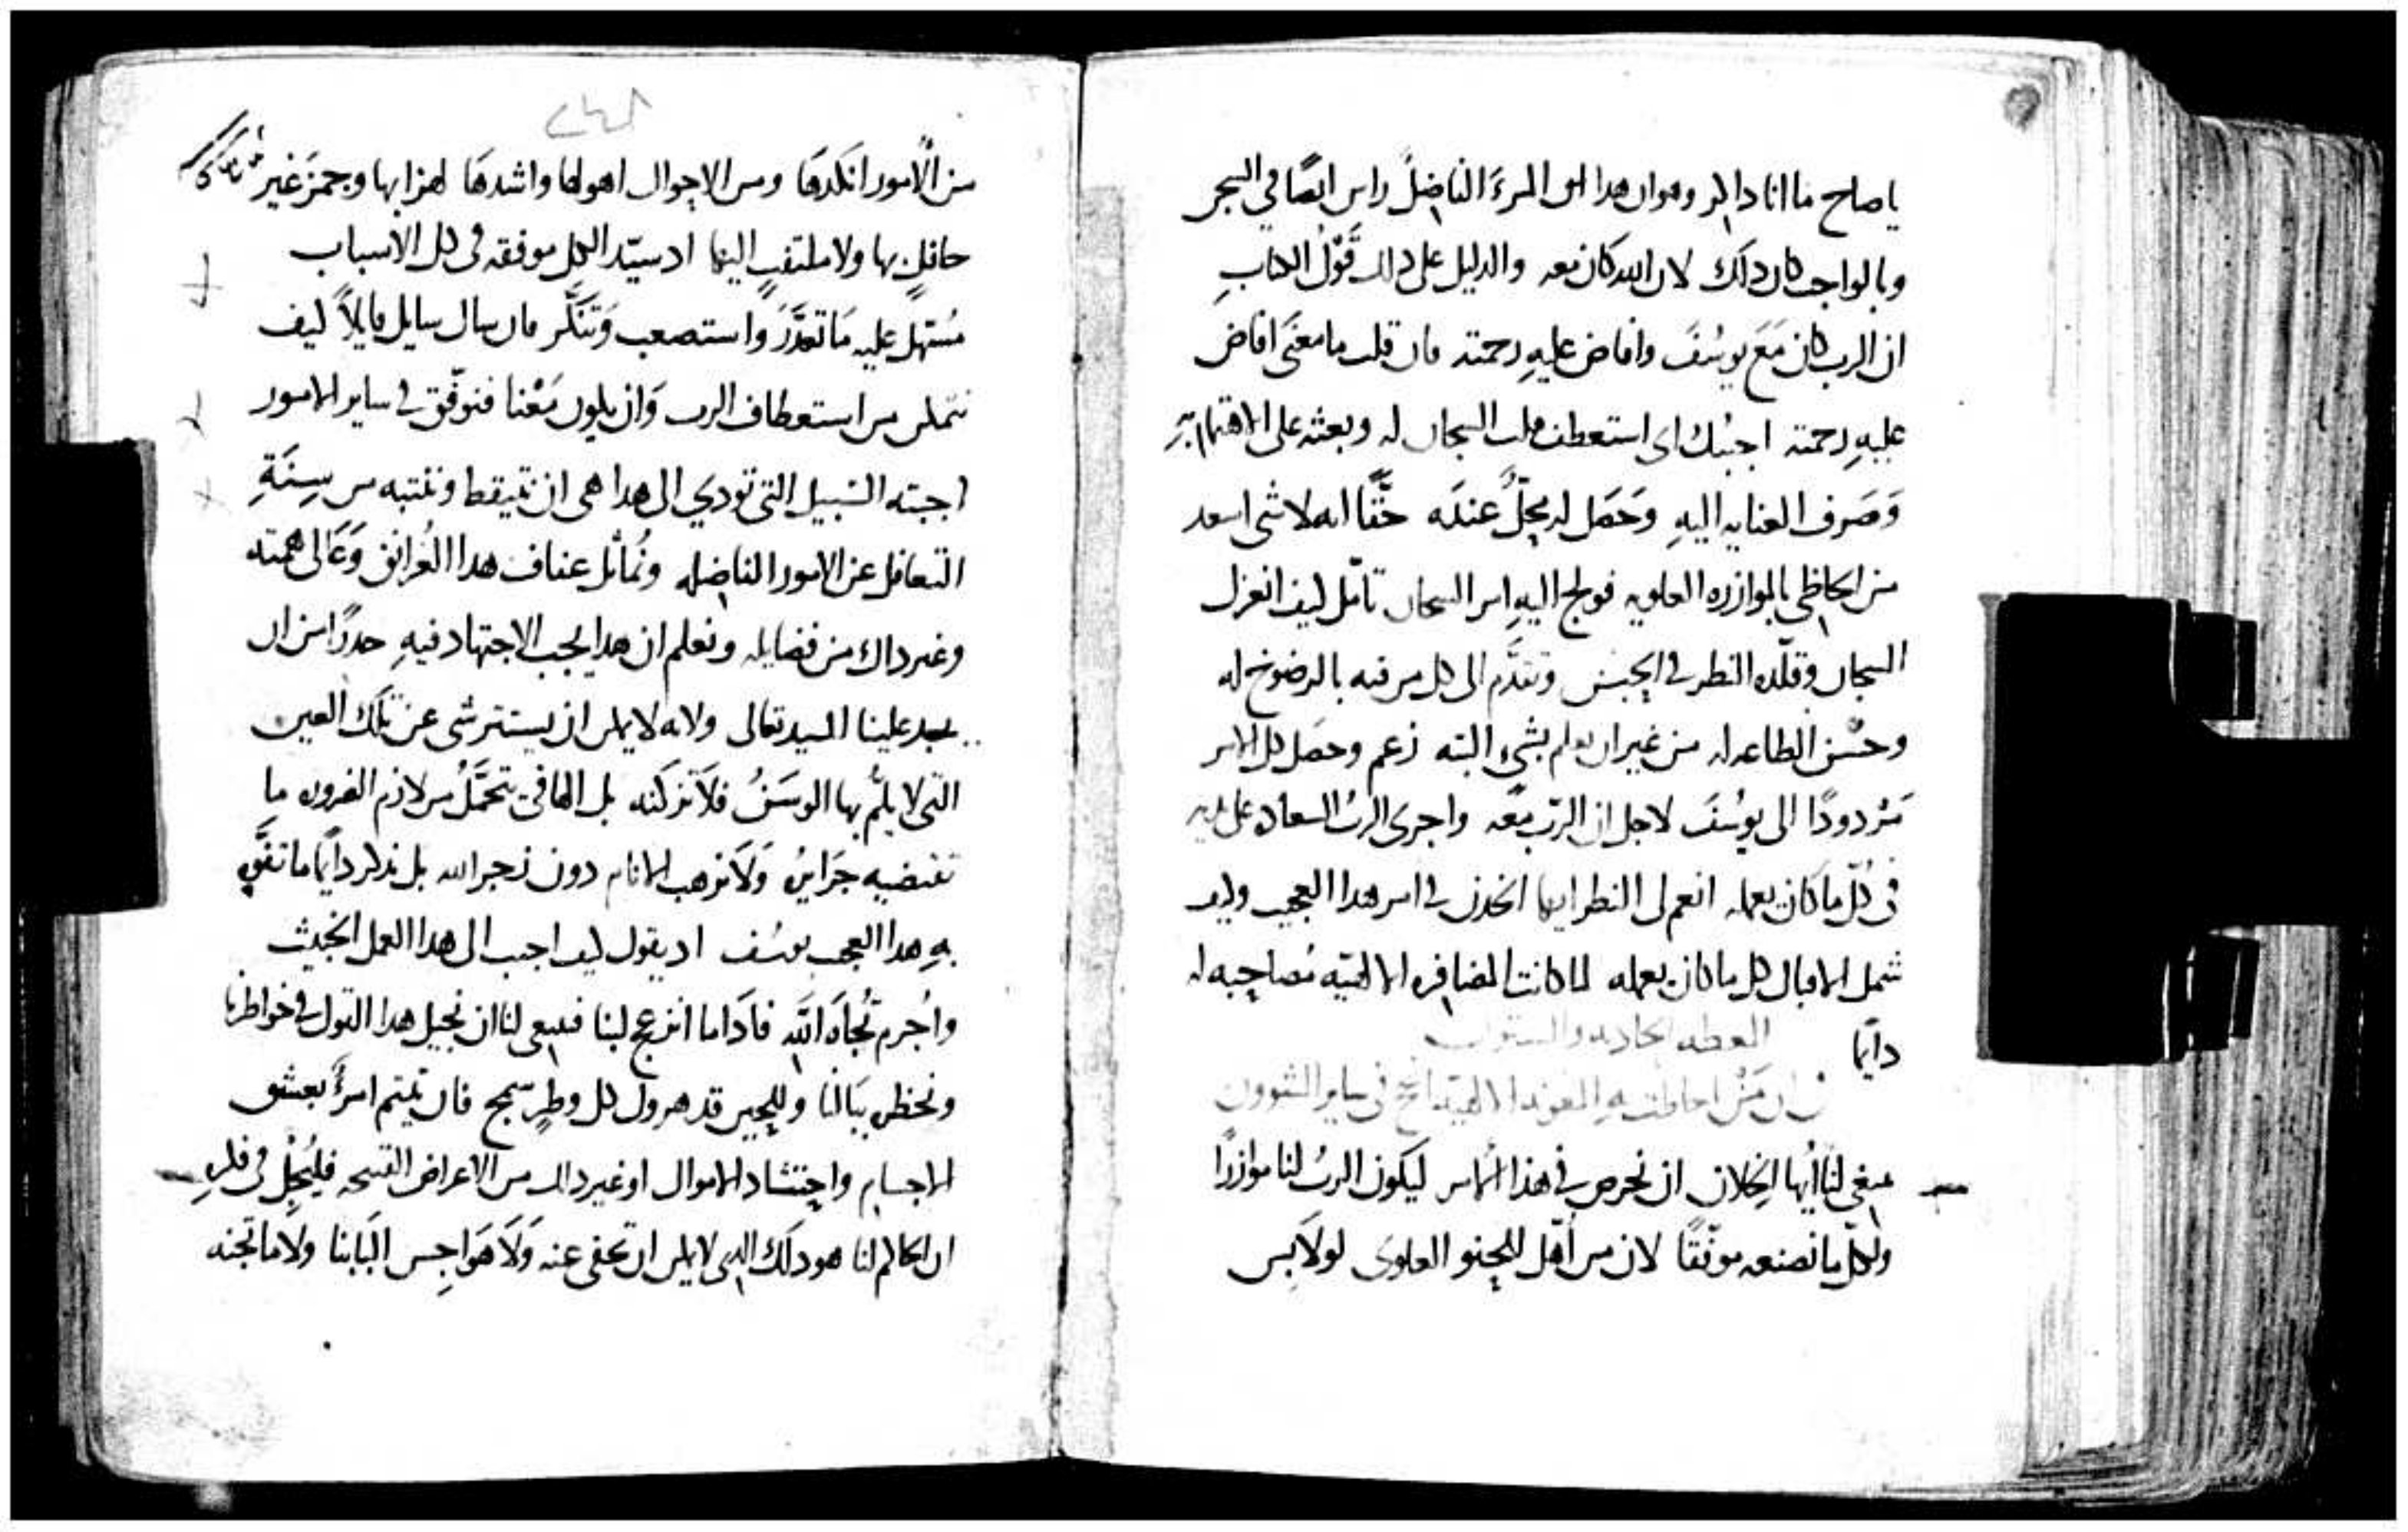 يا صاح ما انا داكر وهو ان هدا المرء الفاضل راس ايضًا في السجن
وبالواجب كان دلك لان الله كان معه والدليل على دلك قول الكتاب
ان الرب كان مَعَ يوسُفَ وافاض عليهِ رحمته فان قلت ما معنَى افاض
عليهِ رحمته اجبتك اى استعطف قلب السجان له وبعثه على الاهتمام بهِ
وَصَرف العنايه اليهِ وحَصَل له محلٌّ عندَه حَقًّا انه لا شى اسعد
من الحاظي بالموازره العلويه فولج اليهِ امر السجان تامّل كيف انعزل
السجان وقلّده النظر في الحبس وتقدَّم الى كل من فيه بالرضوخ له
وحسْن الطاعه له من غير ان يعلم بشيء البته زعم وحصل كل الامر
مَردودًا الى يوسُفَ لاجل ان الربّ معَه واجرى الربُ السعاده على يديه
فى كُلّ ما كان يعمله انعم لى النظر ايها الخدن في امر هدا العجيب وكيف
شمل الاقبال كل ما كان يعمله لما كانت المضافره الالهيّه مُصاحِبه له
دآيما
العظه الحاديه والستون
فى ان مَنْ احاطت بهِ المعونه الالهيّه انجح فى ساير الشوون
ينبغى لنا أيها الخلان ان نحرص في هذا الأمر ليكون الربُ لنا موازرًا
ولكلّ ما نصنعه موفّقًا لان من أهّل للحنو العلوى لو لابس
من الأمور انكدهَا ومن الاحوال اهولها واشدهَا لهزا بها وجمز غير
حافلٍ بها ولا ملتفتٍ اليها اد سيّد الكل موفقه فى كل الاسباب
مُسَهل عليه مَا تعدَّرَ واستصعب وَتنَكَّر فان سال سايل قايلاً كيف
نتمكن من استعطاف الرب وَان يكون مَعْنا فنوفّق في ساير الامور
اجبته السّبيل التى تودي الى هدا هى ان نتيقظ وننتبه من سِنَةِ
التغافل عن الامور الفاضله ونُماثل عفاف هدا الغُرانق وَعَالى همته
وغير داك من فضايله ونعلم ان هدا يجب الاجتهاد فيهِ حدرًا من ان
يجد علينا السيد تعالى ولانه لا يمكن ان يستتر شى عن تلك العين
التى لا يلُمّ بها الوسَنُ فلا نزكنه بل الهافي نتحمَّلُ من لازم الضروره ما
تقتضيه جرَايرُ وَلا نرهب الانام دون زجر الله بل ندكر دايمًا ما تفوَّه
بهِ هدا العجيب يوسُف اد يقول كيف اجيب الى هدا العمل الخبيث
واُجرم تُجاهَ اللهِ فادَا ما انزعج لبنا فينبغى لنا ان نجيل هدا القول في خواطرنا
ونخطر ببَالنا وللحين قد هرول كل وطرٍ سمج فان تيتم امرؤٌ بعشق
الاجسام واحتشاد الاموال او غير دلك من الاعراض القبيحه فليُجِلْ فى فكرهِ
ان الحاكم لنا هو دلك الدى لا يمكن ان تخفى عنه وَلا هَواجِس البَابنا ولا ما تجنه